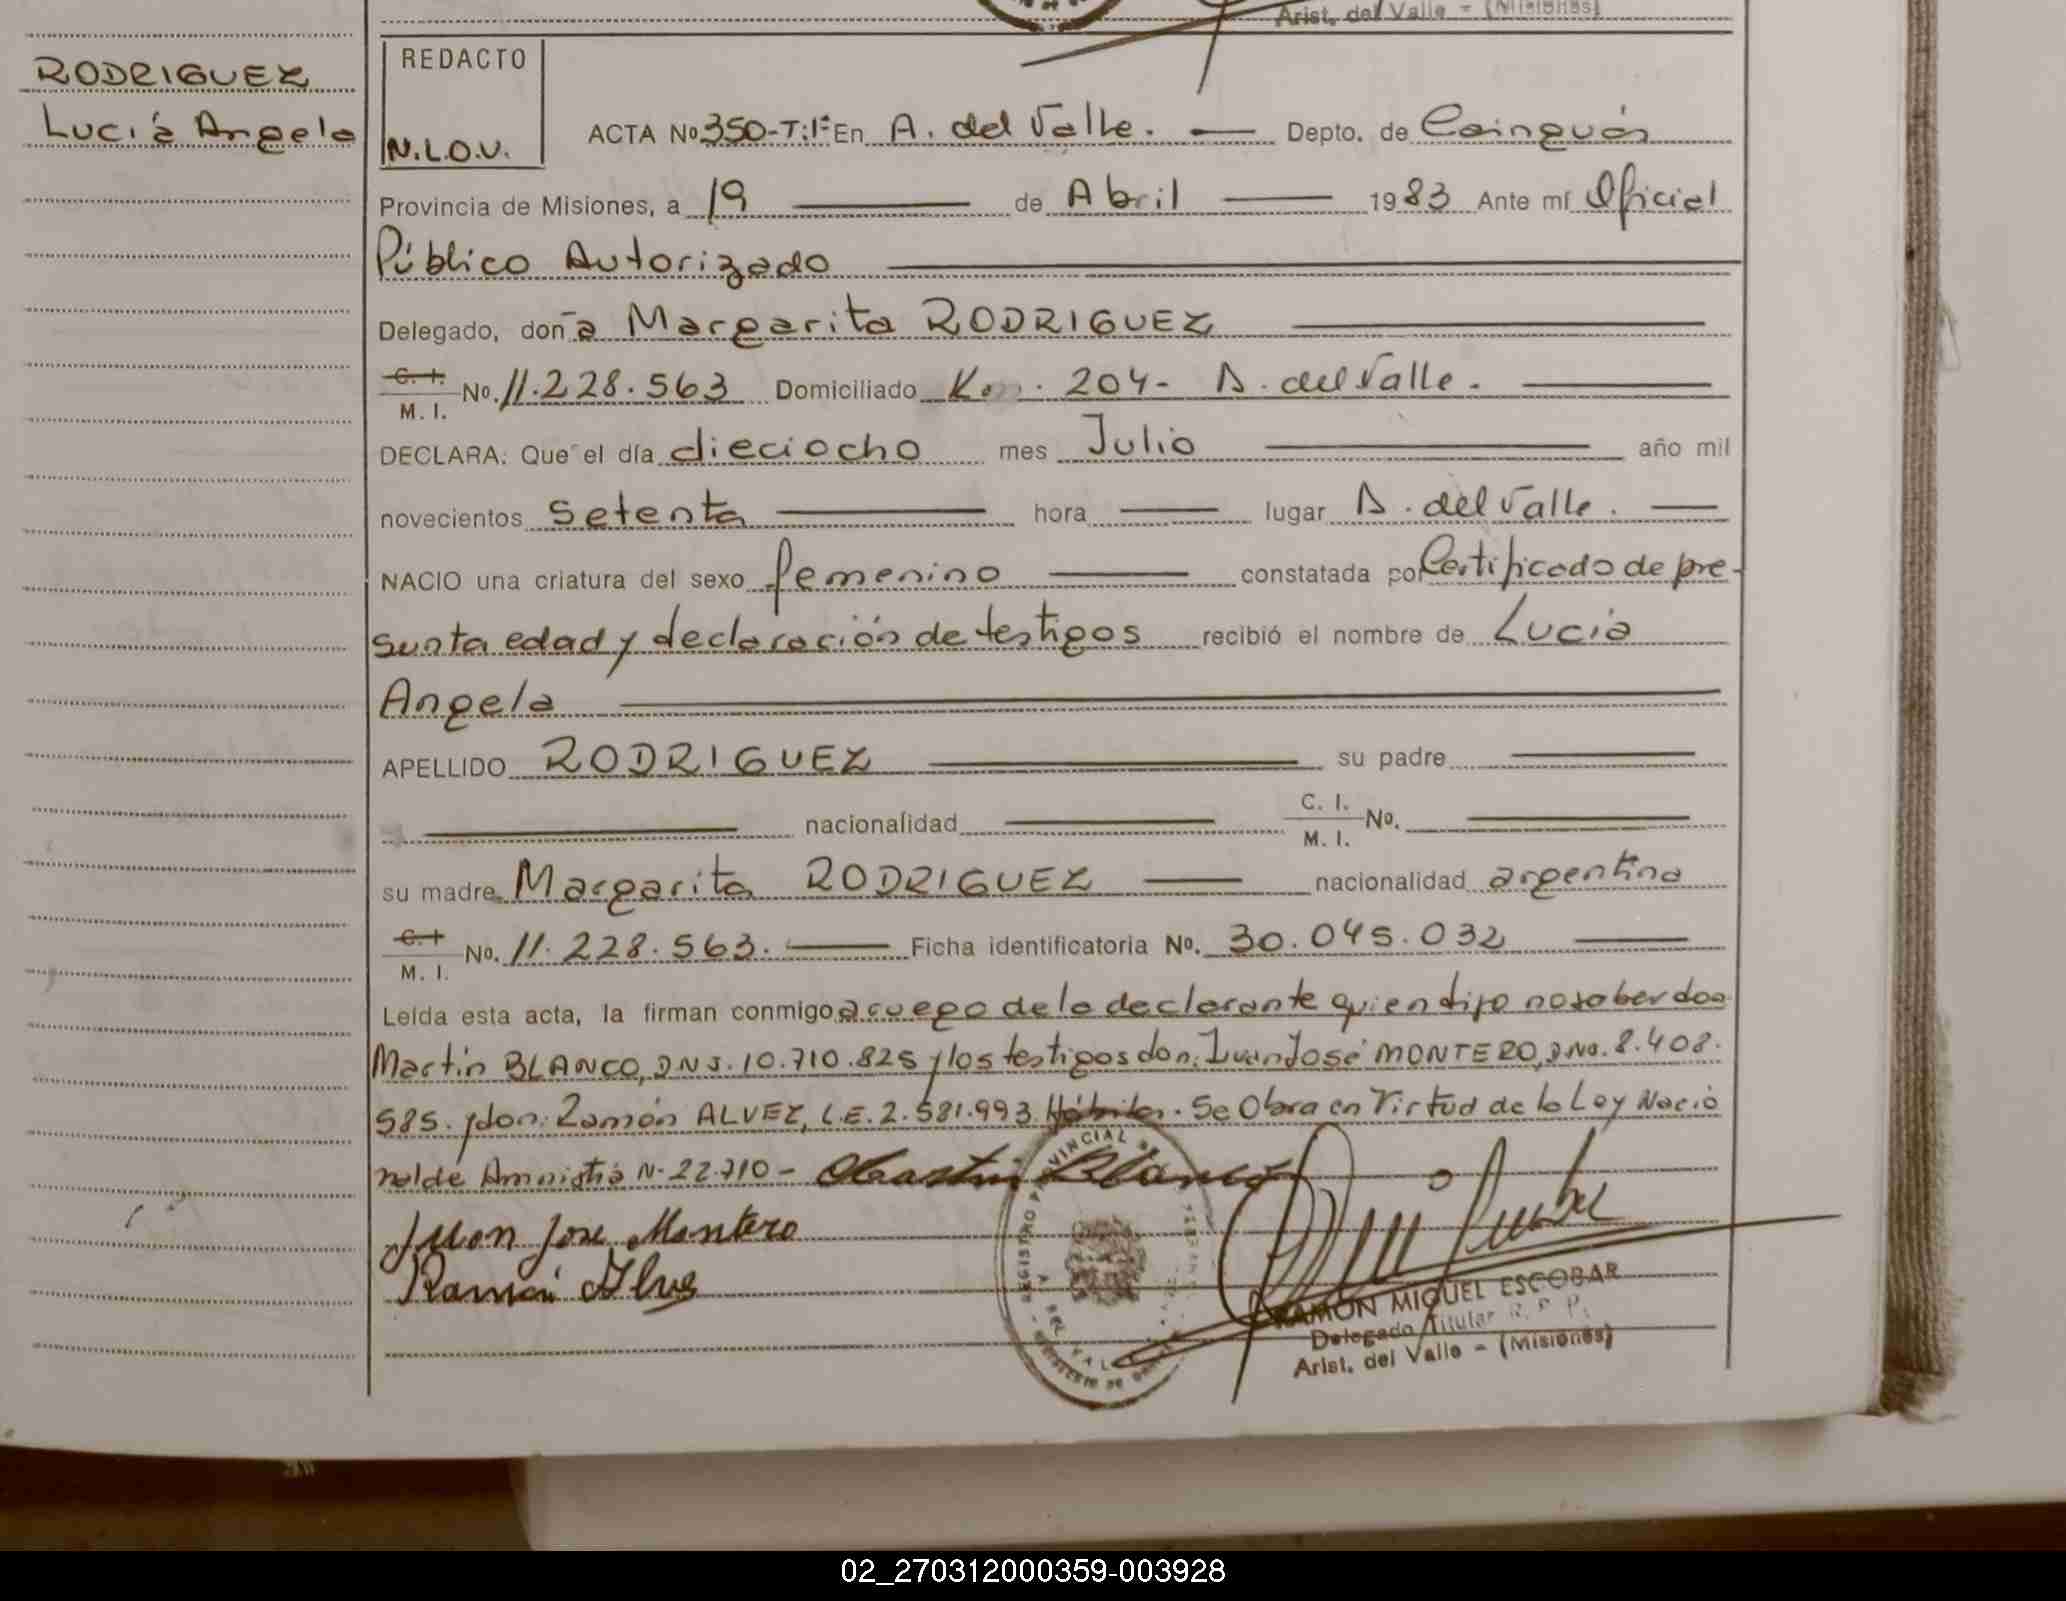 Arist. del Valle - (Misiones)
RODRIGUEZ
Lucía Angela
REDACTO
N.L.O.V.
ACTA No 350-T:1º En A. del Valle. Depto. de Cainguás
Provincia de Misiones, a 19 de Abril 1983 Ante mí Oficial
Público Autorizado
Delegado, doña Margarita RODRIGUEZ
C. I.
M. I. No. 11.228.563 Domiciliado Km. 204- A. del Valle.
DECLARA: Que el día dieciocho mes Julio año mil
novecientos setenta hora lugar A. del Valle.
NACIO una criatura del sexo femenino constatada por Certificado de pre-
sunta edad y declaración de testigos recibió el nombre de Lucia
Angela
APELLIDO RODRIGUEZ su padre
nacionalidad C. I.
M. I. No.
su madre Margarita RODRIGUEZ nacionalidad argentina
C. I
M. I. No. 11.228.563. Ficha identificatoria No. 30.045.032
Leída esta acta, la firman conmigo a ruego de la declarante quien dijo no saber don
Martín BLANCO, DNI. 10.710.825 y los testigos don: Juan José MONTERO, DNI. 8.408.
585. y don: Ramón ALVEZ, L.E. 2.581.993. Hábiles. Se Obra en Virtud de la Ley Nacio
nal de Amnistía N. 22.710 - Martin Blanco
Juan Jose Montero
Ramón Alves
REGISTRO PROVINCIAL DE
RAMON MIGUEL ESCOBAR
Delegado Titular R. P. P.
Arist. del Valle - (Misiones)
02_270312000359-003928